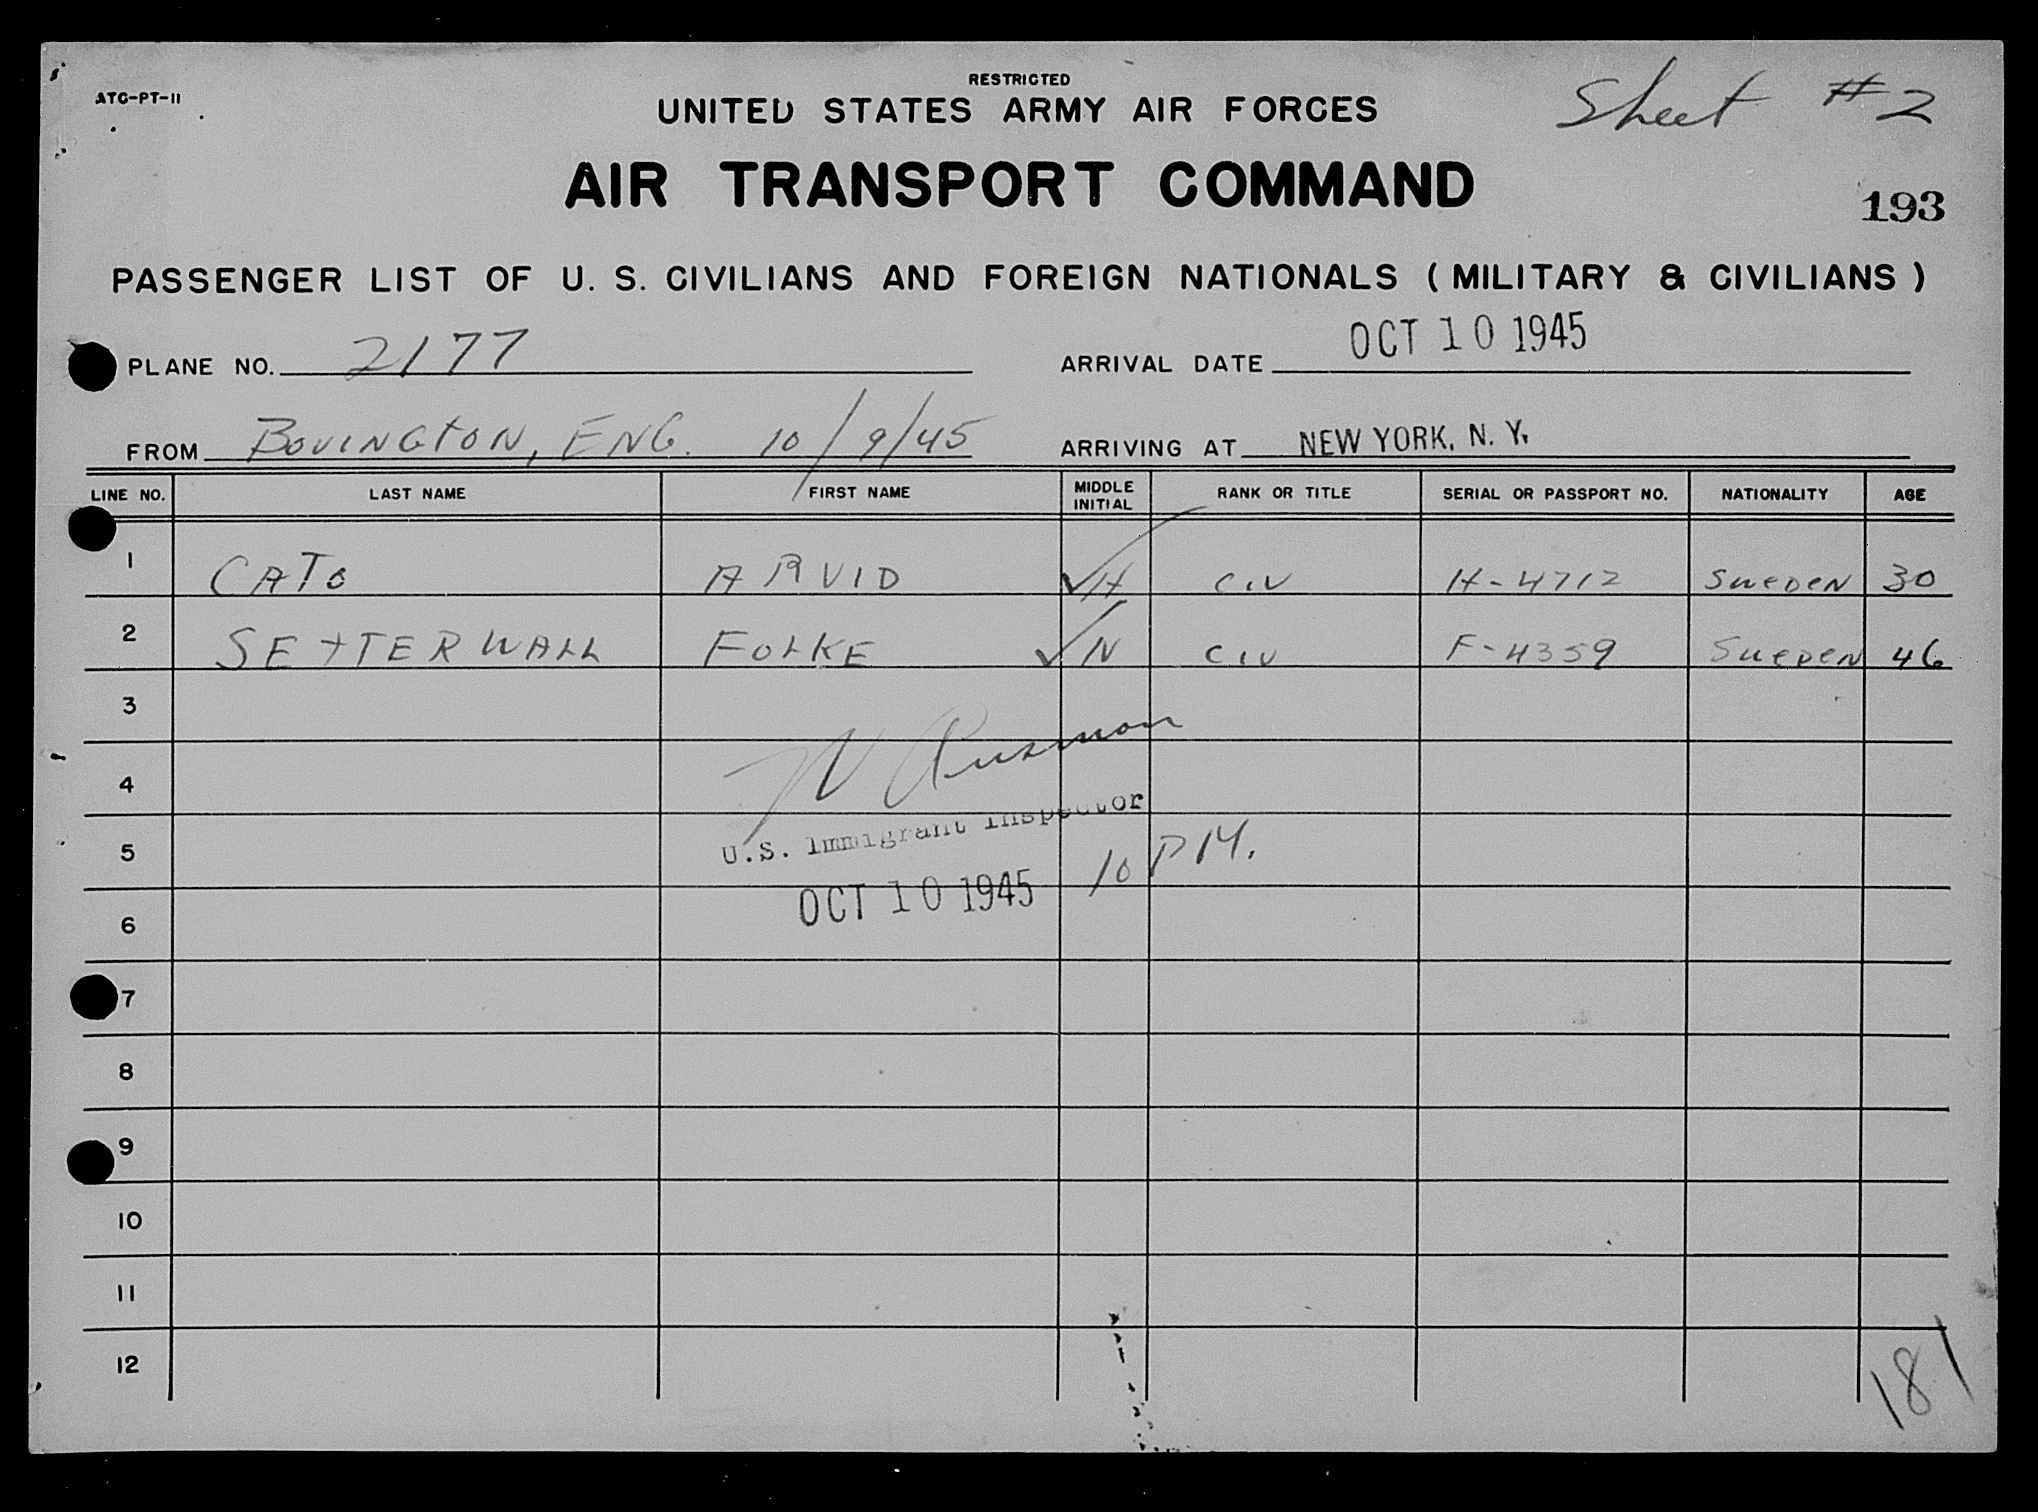 RESTRICTED
ATC-PT-11
UNITED STATES ARMY AIR FORCES
Sheet #2
AIR TRANSPORT COMMAND
193
PASSENGER LIST OF U. S. CIVILIANS AND FOREIGN NATIONALS ( MILITARY & CIVILIANS )
PLANE NO. 2177 ARRIVAL DATE OCT 10 1945
FROM BOVINGTON, ENG. 10/9/45 ARRIVING AT NEW YORK, N. Y.
LINE NO. LAST NAME FIRST NAME MIDDLE INITIAL RANK OR TITLE SERIAL OR PASSPORT NO. NATIONALITY AGE
1 CATO ARVID H CIV H-4712 SWEDEN 30
2 SETTERWALL FOLKE N CIV F-4359 SWEDEN 46
3
4
U.S. Immigrant Inspector
5 10 PM.
OCT 10 1945
6
7
8
9
10
11
12
181